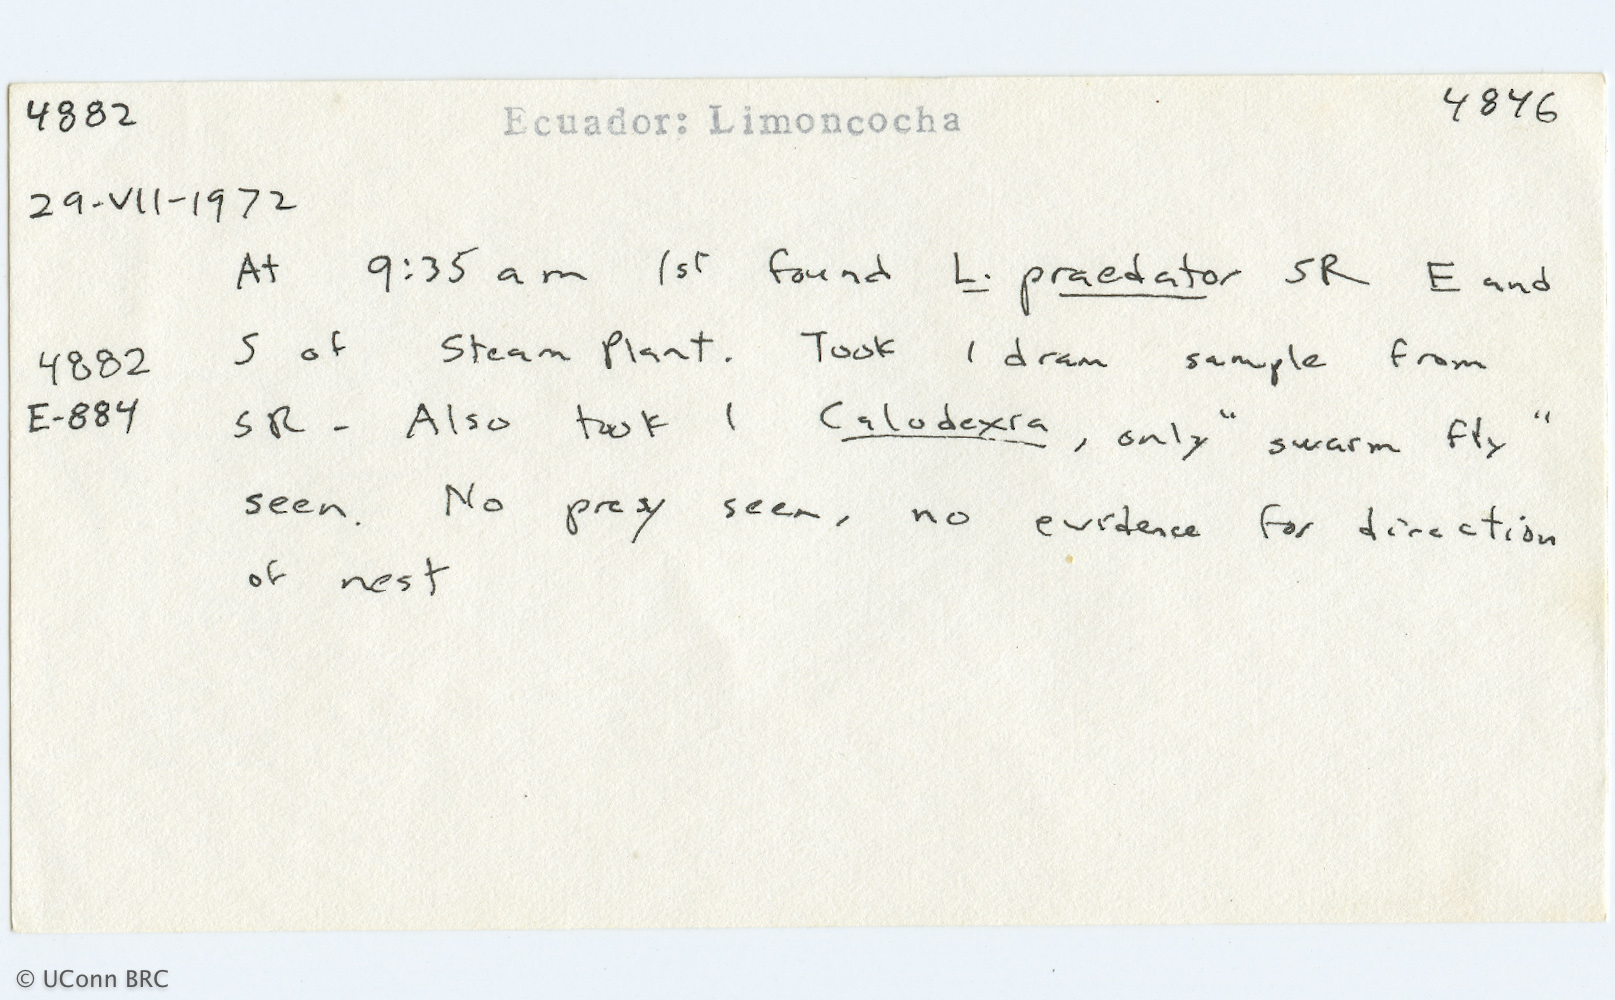 4882 Ecuador: Limoncocha 4846
29-VII-1972
At 9:35 am 1st found L. praedator SR E and
4882 S of Steam Plant. Took 1 dram sample from
E-884 SR - Also took 1 Calodexia, only "swarm fly"
seen. No prey seen, no evidence for direction
of nest
© UConn BRC